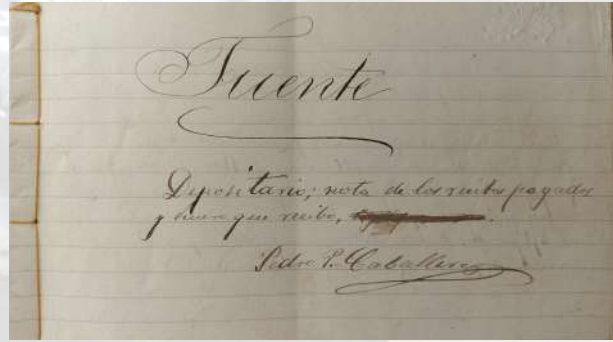 Fuente
Depositario; nota de los recibos pagados
y que recibo,
Pedro P. Caballero